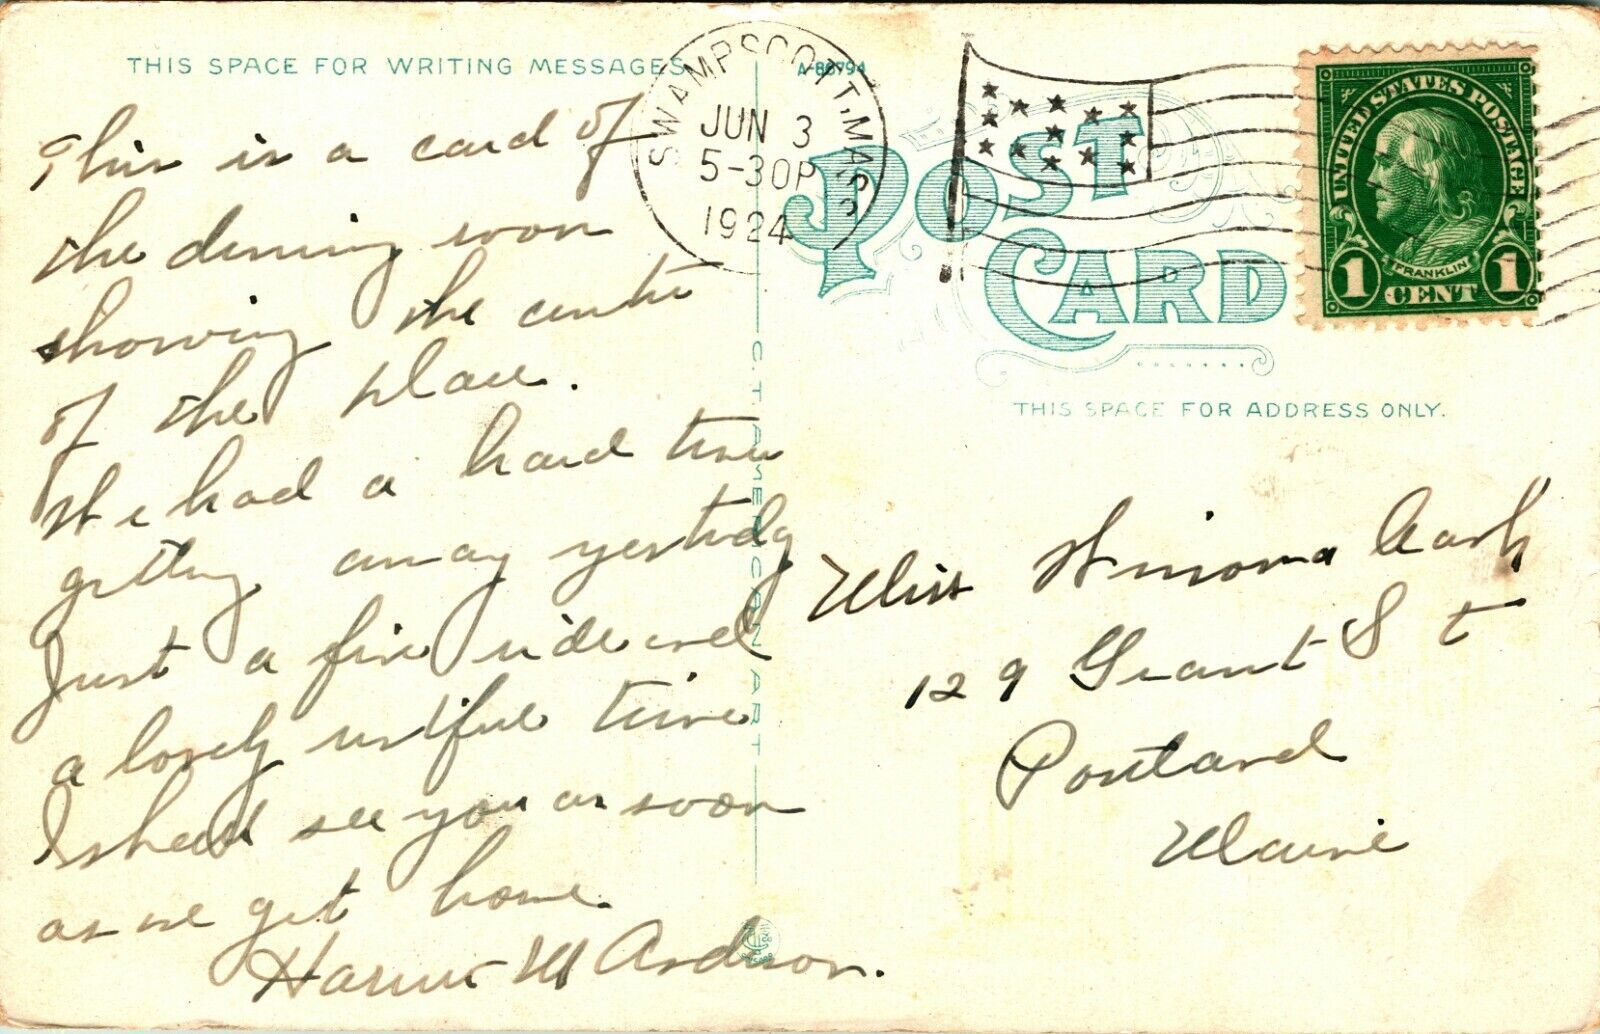 THIS SPACE FOR WRITING MESSAGES
This is a card of
the dining room
showing the centre
of the place.
We had a hard time
getting away yesterday
Just a fine ride and
a lovely restful time
I shall see you as soon
as we get home.
Harriet M Anderson.
C. T. AMERICAN ART
SWAMPSCOTT, MASS
JUN 3
5-30P
1924
A-88794
POST CARD
UNITED STATES POSTAGE
FRANKLIN
1 CENT 1
THIS SPACE FOR ADDRESS ONLY.
Miss Winona
129 Grant St
Portland
Maine